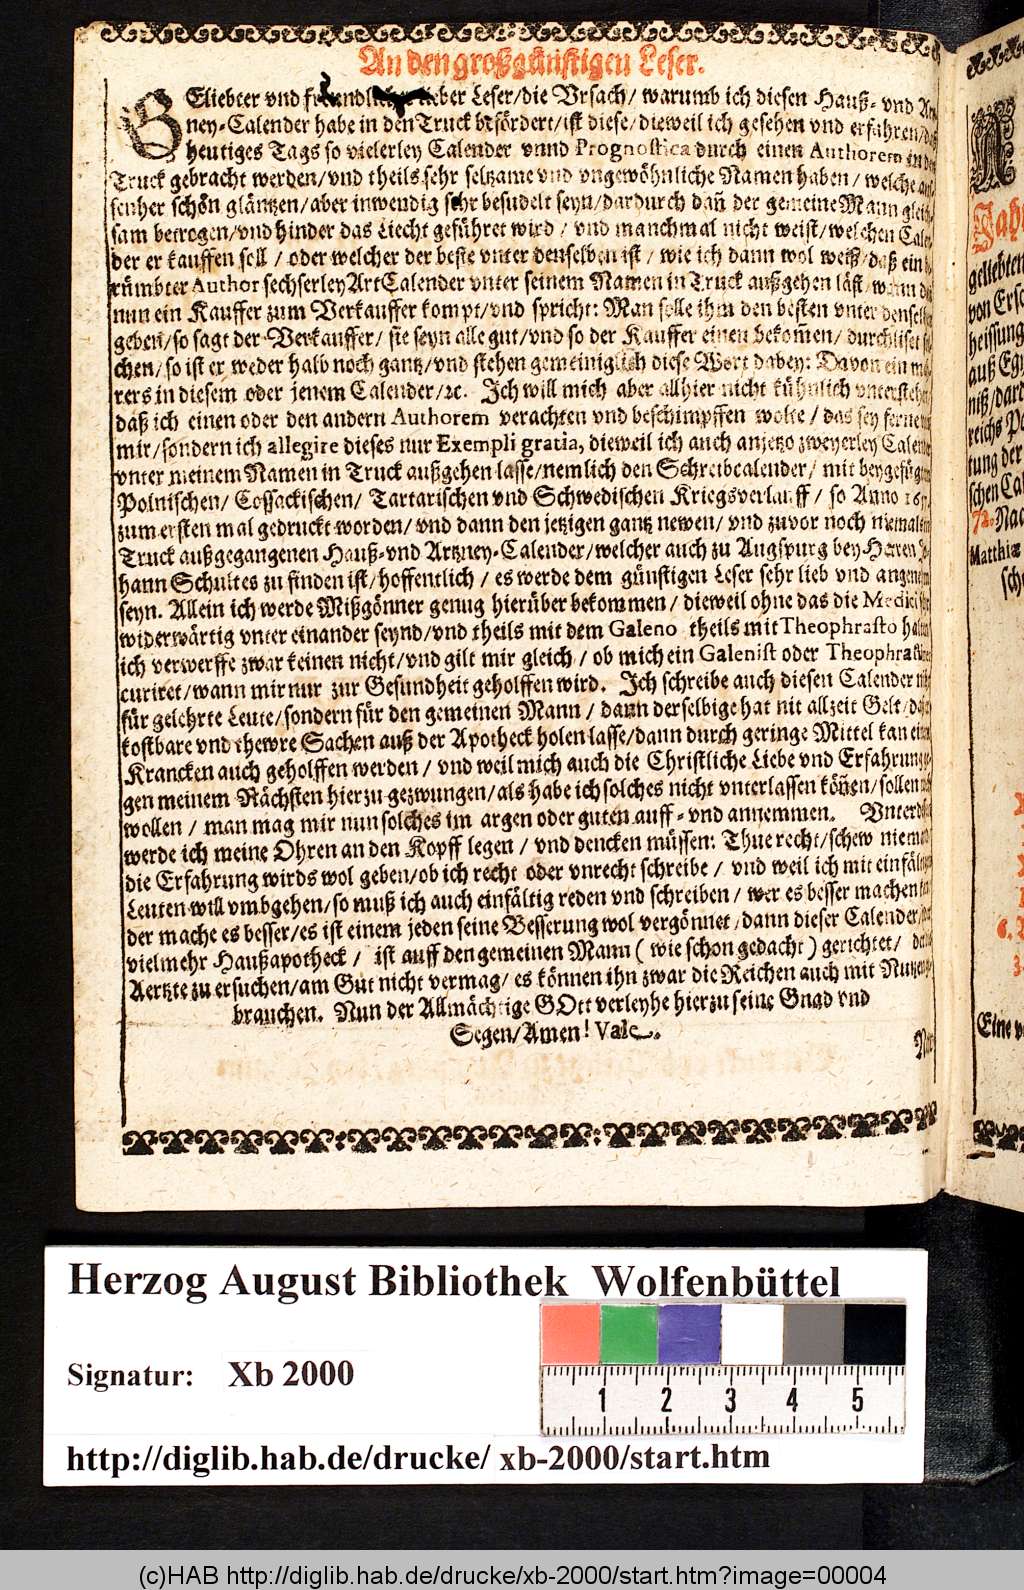 An den großgünstigen Leser.
GEliebter vnd freundlicher lieber Leser/die Vrsach/ warumb ich diesen Hauß- vnd
ney-Calender habe in den Truck befördert/ist diese/dieweil ich gesehen vnd erfahren/
heutiges Tags so vielerley Calender vnnd Prognostica durch einen Authorem in
Truck gebracht werden/vnd theils sehr seltzame vnd vngewöhnliche Namen haben/ welche
senher schön gläntzen/aber inwendig sehr besudelt seyn/dardurch dañ der gemeine Mann gleich
sam betrogen/vnd hinder das Liecht geführet wird/ vnd manchmal nicht weist/welchen Calen
der er kauffen soll/ oder welcher der beste vnter denselben ist/ wie ich dann wol weiß/daß ein
rümbter Author sechserley Art Calender vnter seinem Namen in Truck außgehen läst/wann
nun ein Kauffer zum Verkauffer kompt/vnd spricht: Man solle ihm den besten vnter denselben
geben/so sagt der Verkauffer/ sie seyn alle gut/vnd so der Kauffer einen bekom̃en/ durchliset
chen/so ist er weder halb noch gantz/vnd stehen gemeiniglich diese Wort dabey: Davon ein
rers in diesem oder jenem Calender/ꝛc. Ich will mich aber allhier nicht kühnlich vnterstehen
daß ich einen oder den andern Authorem verachten vnd beschimpffen wolte/ das sey ferne
mir/sondern ich allegire dieses nur Exempli gratia, dieweil ich auch anjetzo zweyerley Calender
vnter meinem Namen in Truck außgehen lasse/nemlich den Schreibcalender/ mit beygefügten
Polnischen/ Cossackischen/ Tartarischen vnd Schwedischen Kriegsverlauff/ so Anno
zum ersten mal gedruckt worden/ vnd dann den jetzigen gantz newen/ vnd zuvor noch niemalen
Truck außgegangenen Hauß-vnd Artzney-Calender/welcher auch zu Augspurg bey Herren Jo
hann Schultes zu finden ist/hoffentlich/ es werde dem günstigen Leser sehr lieb vnd angenehm
seyn. Allein ich werde Mißgönner genug hierüber bekommen/ dieweil ohne das die Medici
widerwärtig vnter einander seynd/vnd theils mit dem Galeno theils mit Theophrasto halten
ich verwerffe zwar keinen nicht/vnd gilt mir gleich/ ob mich ein Galenist oder Theophrastist
curiret/wann mir nur zur Gesundheit geholffen wird. Ich schreibe auch diesen Calender
für gelehrte Leute/sondern für den gemeinen Mann/ dann derselbige hat nit allzeit Gelt/
kostbare vnd thewre Sachen auß der Apotheck holen lasse/dann durch geringe Mittel kan einem
Krancken auch geholffen werden/ vnd weil mich auch die Christliche Liebe vnd Erfahrung
gen meinem Nächsten hierzu gezwungen/als habe ich solches nicht vnterlassen köñen/sollen
wollen/ man mag mir nun solches im argen oder guten auff- vnd annemmen. Vnterdessen
werde ich meine Ohren an den Kopff legen/ vnd dencken müssen: Thue recht/schew niemand
die Erfahrung wirds wol geben/ob ich recht oder vnrecht schreibe/ vnd weil ich mit einfältigen
Leuten will vmbgehen/so muß ich auch einfältig reden vnd schreiben/ wer es besser machen
der mache es besser/es ist einem jeden seine Besserung wol vergönnet/dann dieser Calender/
vielmehr Haußapotheck/ ist auff den gemeinen Mann (wie schon gedacht) gerichtet/
Aertzte zu ersuchen/am Gut nicht vermag/ es können ihn zwar die Reichen auch mit Nutzen
brauchen. Nun der Allmächtige GOtt verleyhe hierzu seine Gnad vnd
Segen/Amen! Vale.
Herzog August Bibliothek Wolfenbüttel
Signatur: Xb 2000
1 2 3 4 5
http://diglib.hab.de/drucke/ xb-2000/start.htm
(c)HAB http://diglib.hab.de/drucke/xb-2000/start.htm?image=00004
geliebten
auß
72.
Matthiæ
Eine